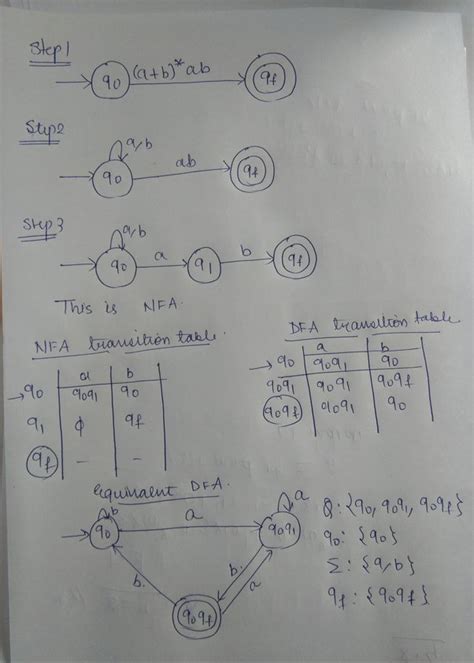 Step 1
q0 (a+b)*ab qf
Step 2
a/b
q0 ab qf
Step 3
a/b
q0 a q1 b qf
This is NFA.
NFA transition table
a b
→q0 q0q1 q0
q1 ϕ qf
qf - -
DFA transition table
a b
→q0 q0q1 q0
q0q1 q0q1 q0qf
q0qf q0q1 q0
equivalent DFA.
b a
q0 a q0q1
b b a
q0qf
Q: {q0, q0q1, q0qf}
q0: {q0}
Σ: {a/b}
qf: {q0qf}